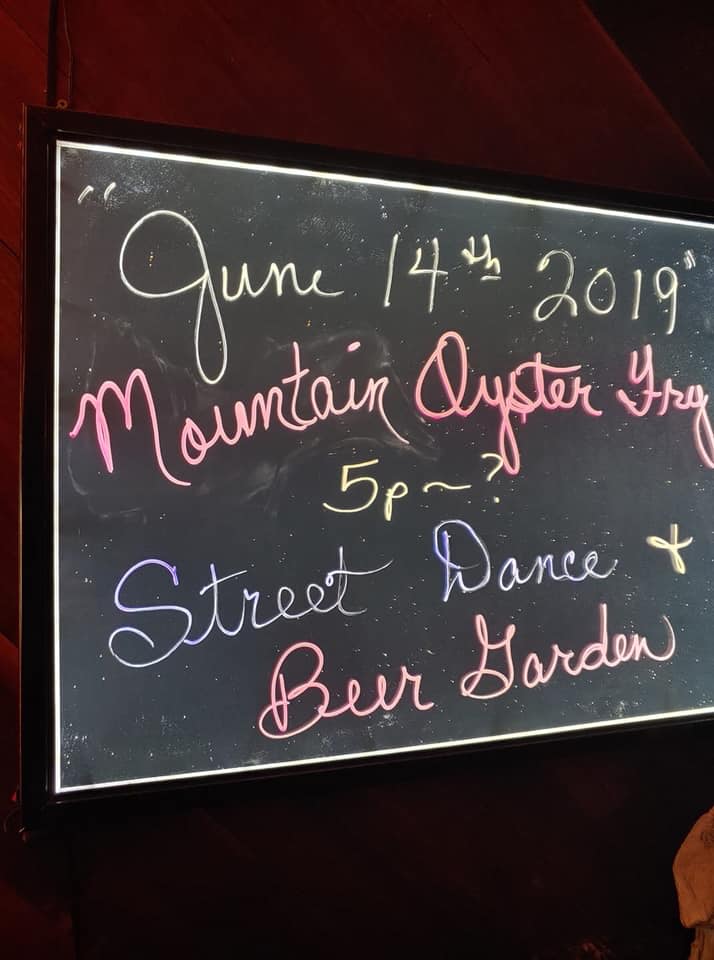 "June 14th 2019"
Mountain Oyster Fry
5p~?
Street Dance +
Beer Garden